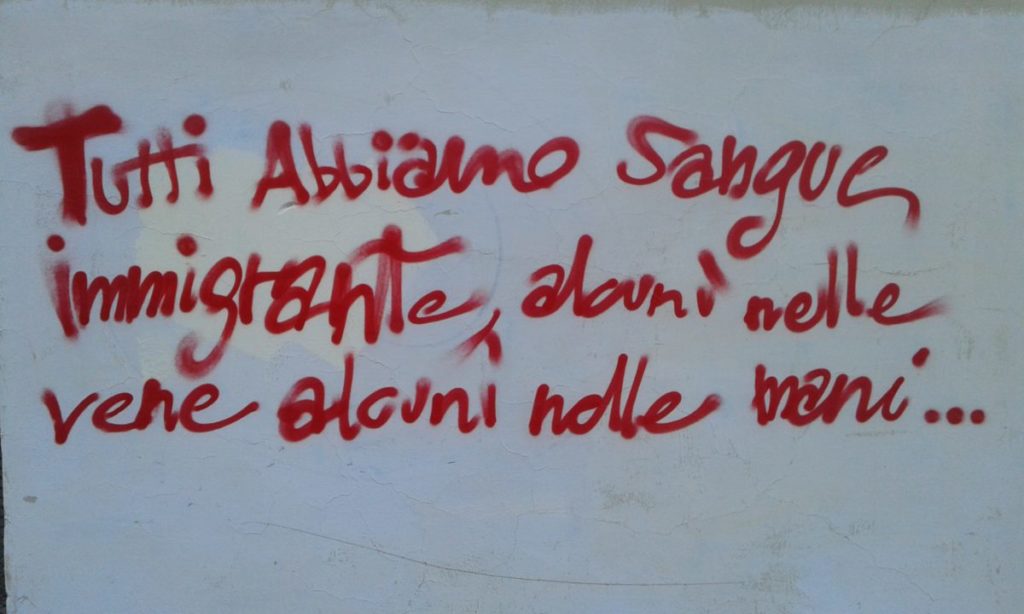 Tutti Abbiamo Sangue
immigrante, alcuni nelle
vene alcuni nelle mani...